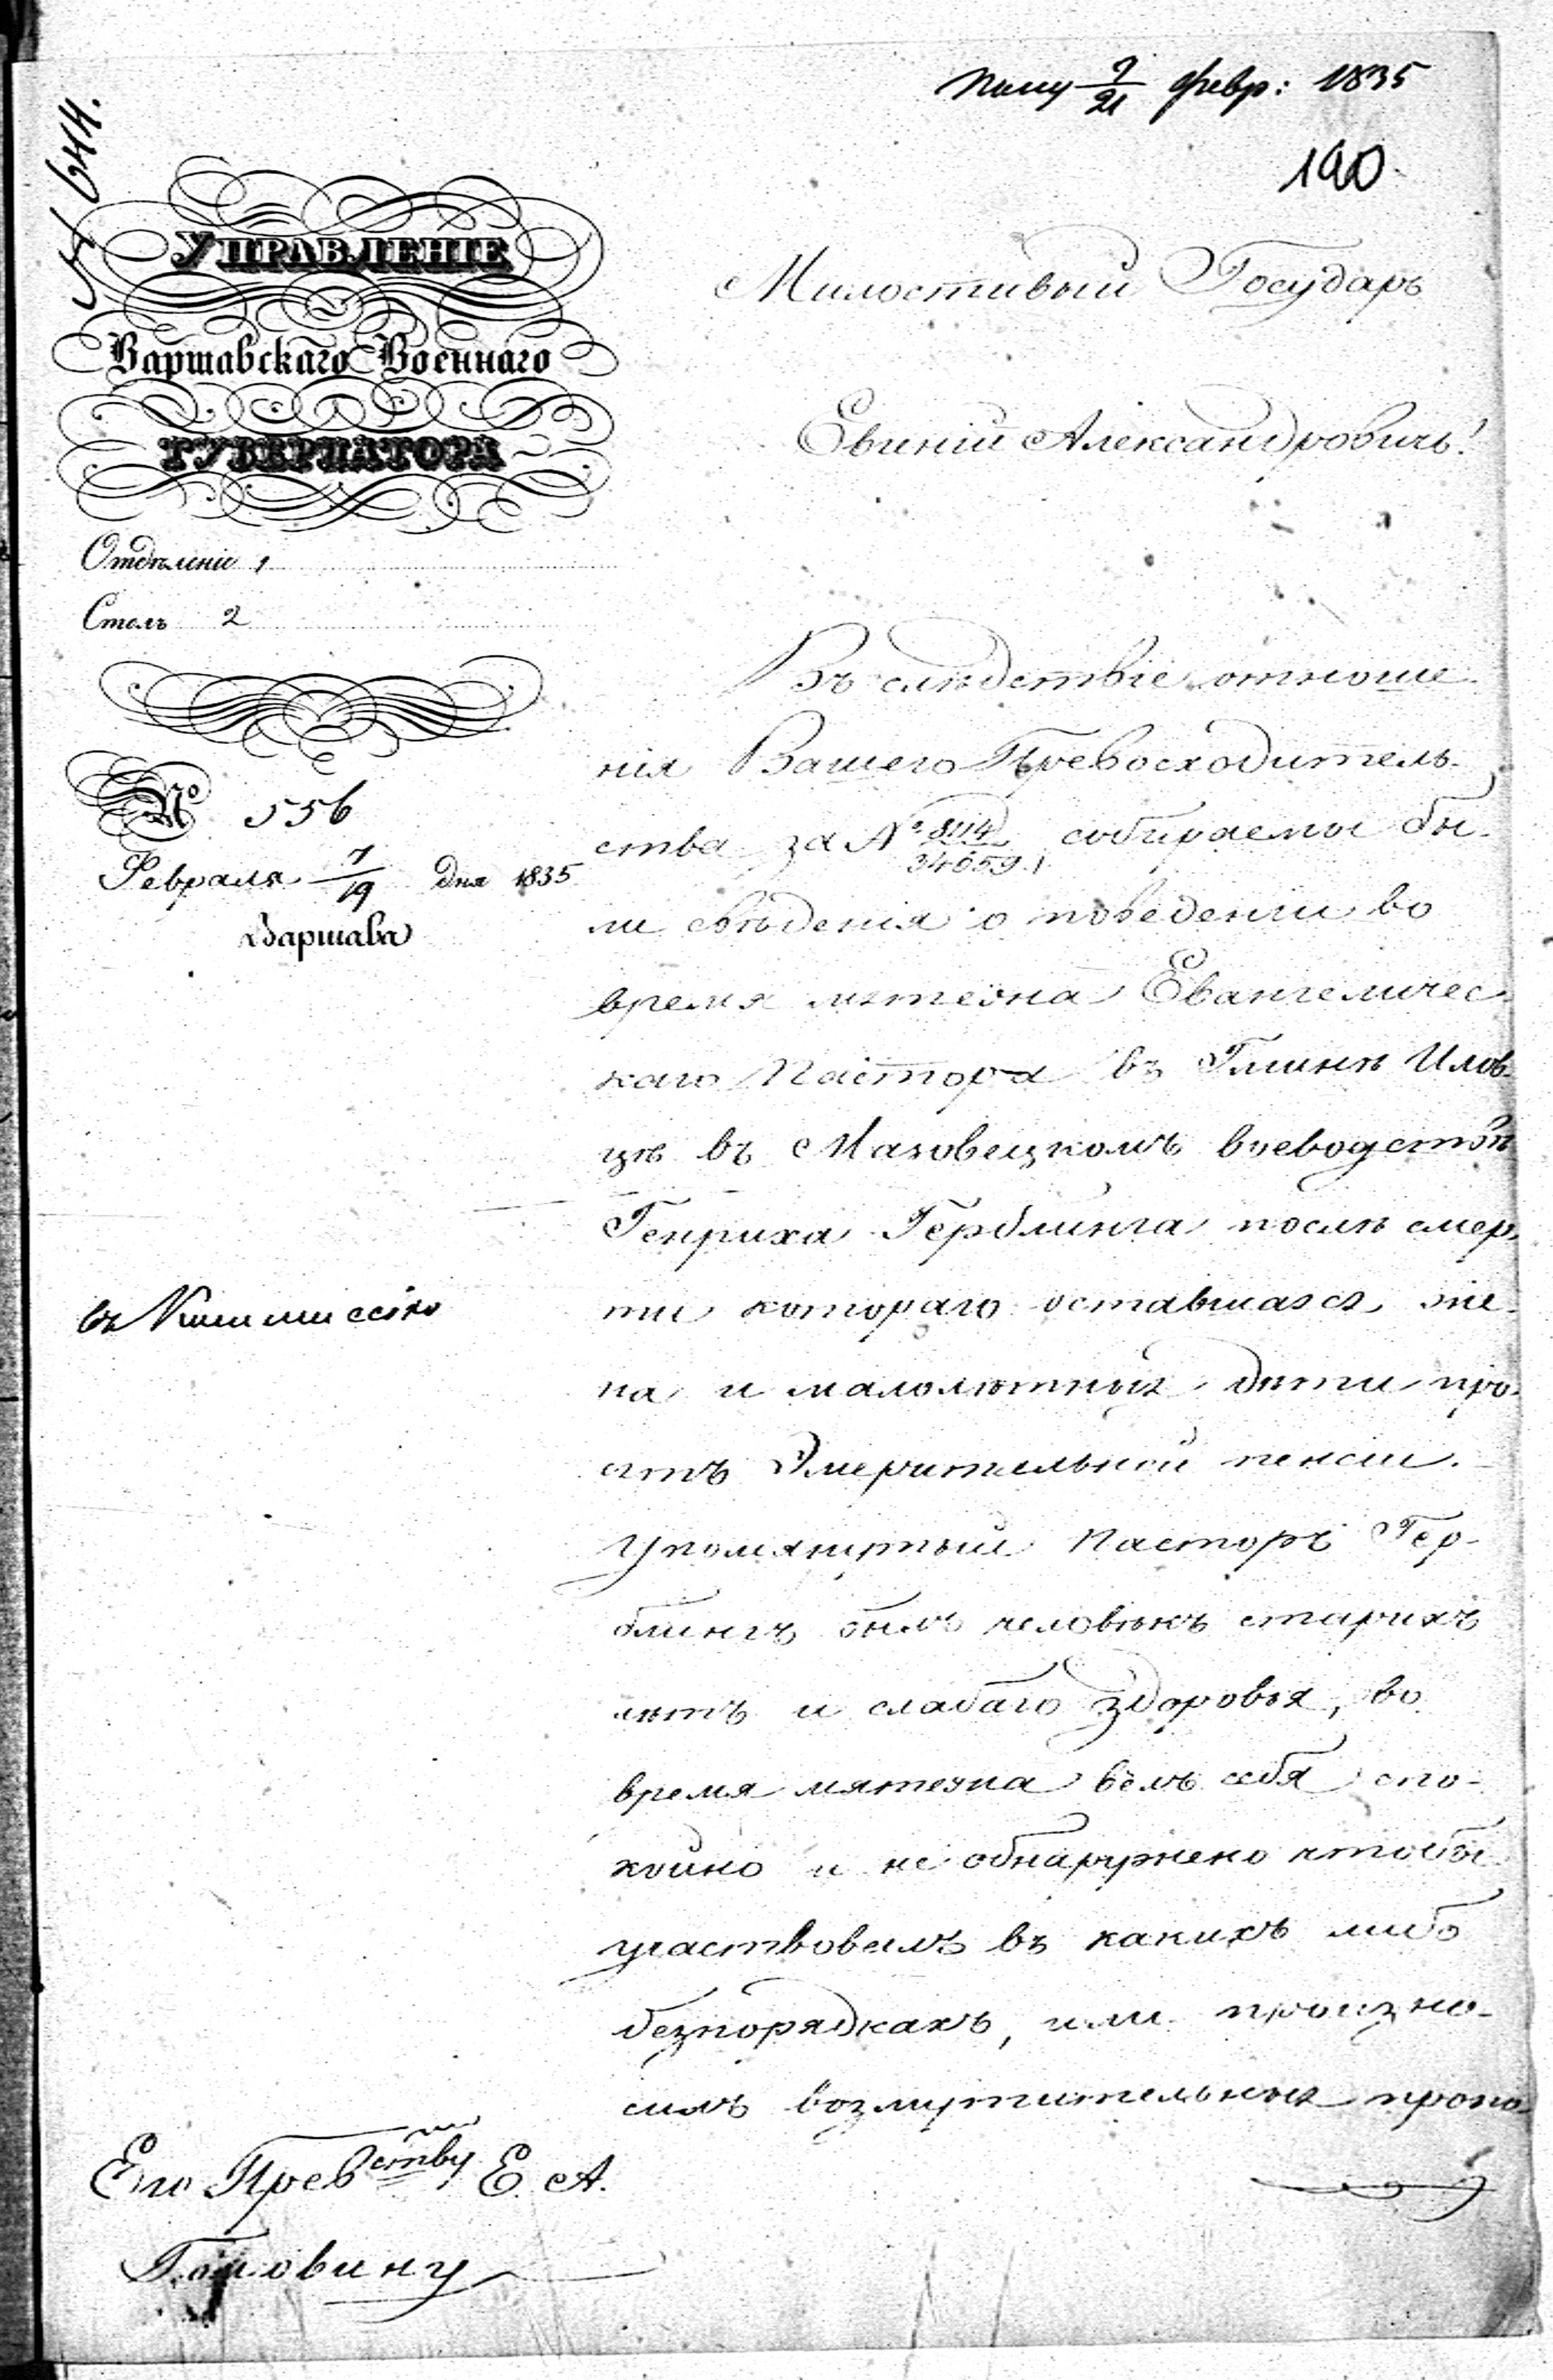 Полу 9/21 февр: 1835
190
№ 644.
УПРАВЛЕНІЕ
Варшавскаго Военнаго
ГУБЕРНАТОРА
Отдѣленіе 1
Столъ 2
№ 556
Февраля 7/19 дня 1835
Варшава
Милостивый Государь
Евгеній Александровичъ!
Въ слѣдствіе отноше-
нія Вашего Превосходитель-
ства за № 34659 собираемы бы-
ли свѣденія о поведеніи во
время мятежа Евангеличес-
каго Пастора въ Глинѣ Илов-
цѣ въ Мазовецкомъ воеводствѣ
Генриха Герблинга послѣ смер-
ти котораго оставшаяся же-
на и малолѣтныя дѣти про-
сятъ Эмерительной пенсіи.
Упомянутый Пасторъ Гер-
блингъ былъ человѣкъ старихъ
лѣтъ и слабаго здоровья, во
время мятежа велъ себя спо-
койно и не обнаружено чтобы
участвовалъ въ какихъ либо
безпорядкахъ, или произно-
силъ возмутительныя пропо-
въ Коммиссію
Его Прев ству Е. А.
Головину